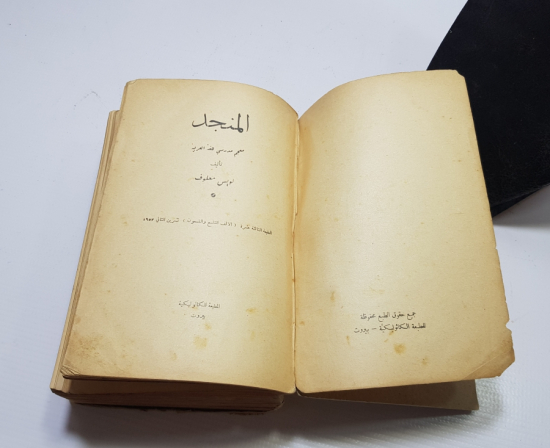 المنجد
معجم مدرسي للغة العربية
تأليف
لويس معلوف
الطبعة الثالثة عشرة ( الألف التاسع والتسعون ) تشرين الثاني ١٩٥٢
المطبعة الكاثوليكية
بيروت
جميع حقوق الطبع محفوظة
للمطبعة الكاثوليكية - بيروت